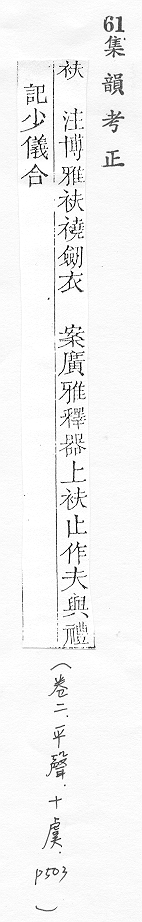 61集韻考正
衭　注博雅衭襓劒衣　案廣雅釋器上衭止作夫與禮
記少儀合
(卷二.平聲.十虞.p503)